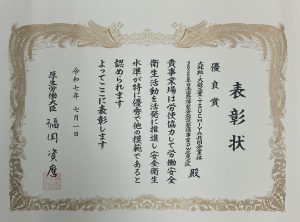 表彰状
優良賞
殿
貴事業場は労使協力して労働安全
衛生活動を活発に推進し安全衛生
水準が特に優秀で他の模範であると
認められます
よってここに表彰します
令和七年七月一日
厚生労働大臣 福岡資麿